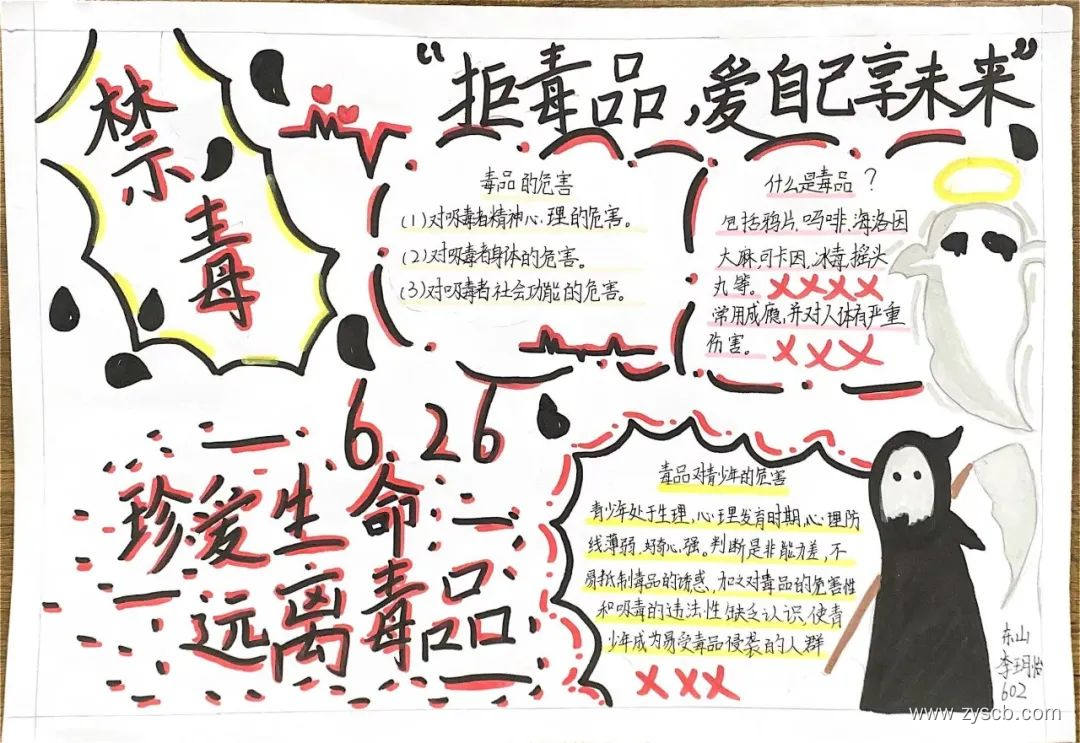 禁毒
“拒毒品,爱自己享未来”
毒品的危害
(1)对吸毒者精神心理的危害。
(2)对吸毒者身体的危害。
(3)对吸毒者社会功能的危害。
什么是毒品?
包括鸦片、吗啡、海洛因
大麻,可卡因,冰毒,摇头
丸等。××××
常用成瘾,并对人体有严重
伤害。×××
6.26
珍爱生命
远离毒品
毒品对青少年的危害
青少年处于生理,心理发育时期,心理防
线薄弱、好奇心强。判断是非能力差,不
易抵制毒品的诱惑,加之对毒品的危害性
和吸毒的违法性缺乏认识,使青
少年成为易受毒品侵袭的人群
×××
东山
李玥怡
602
www.zyscb.com